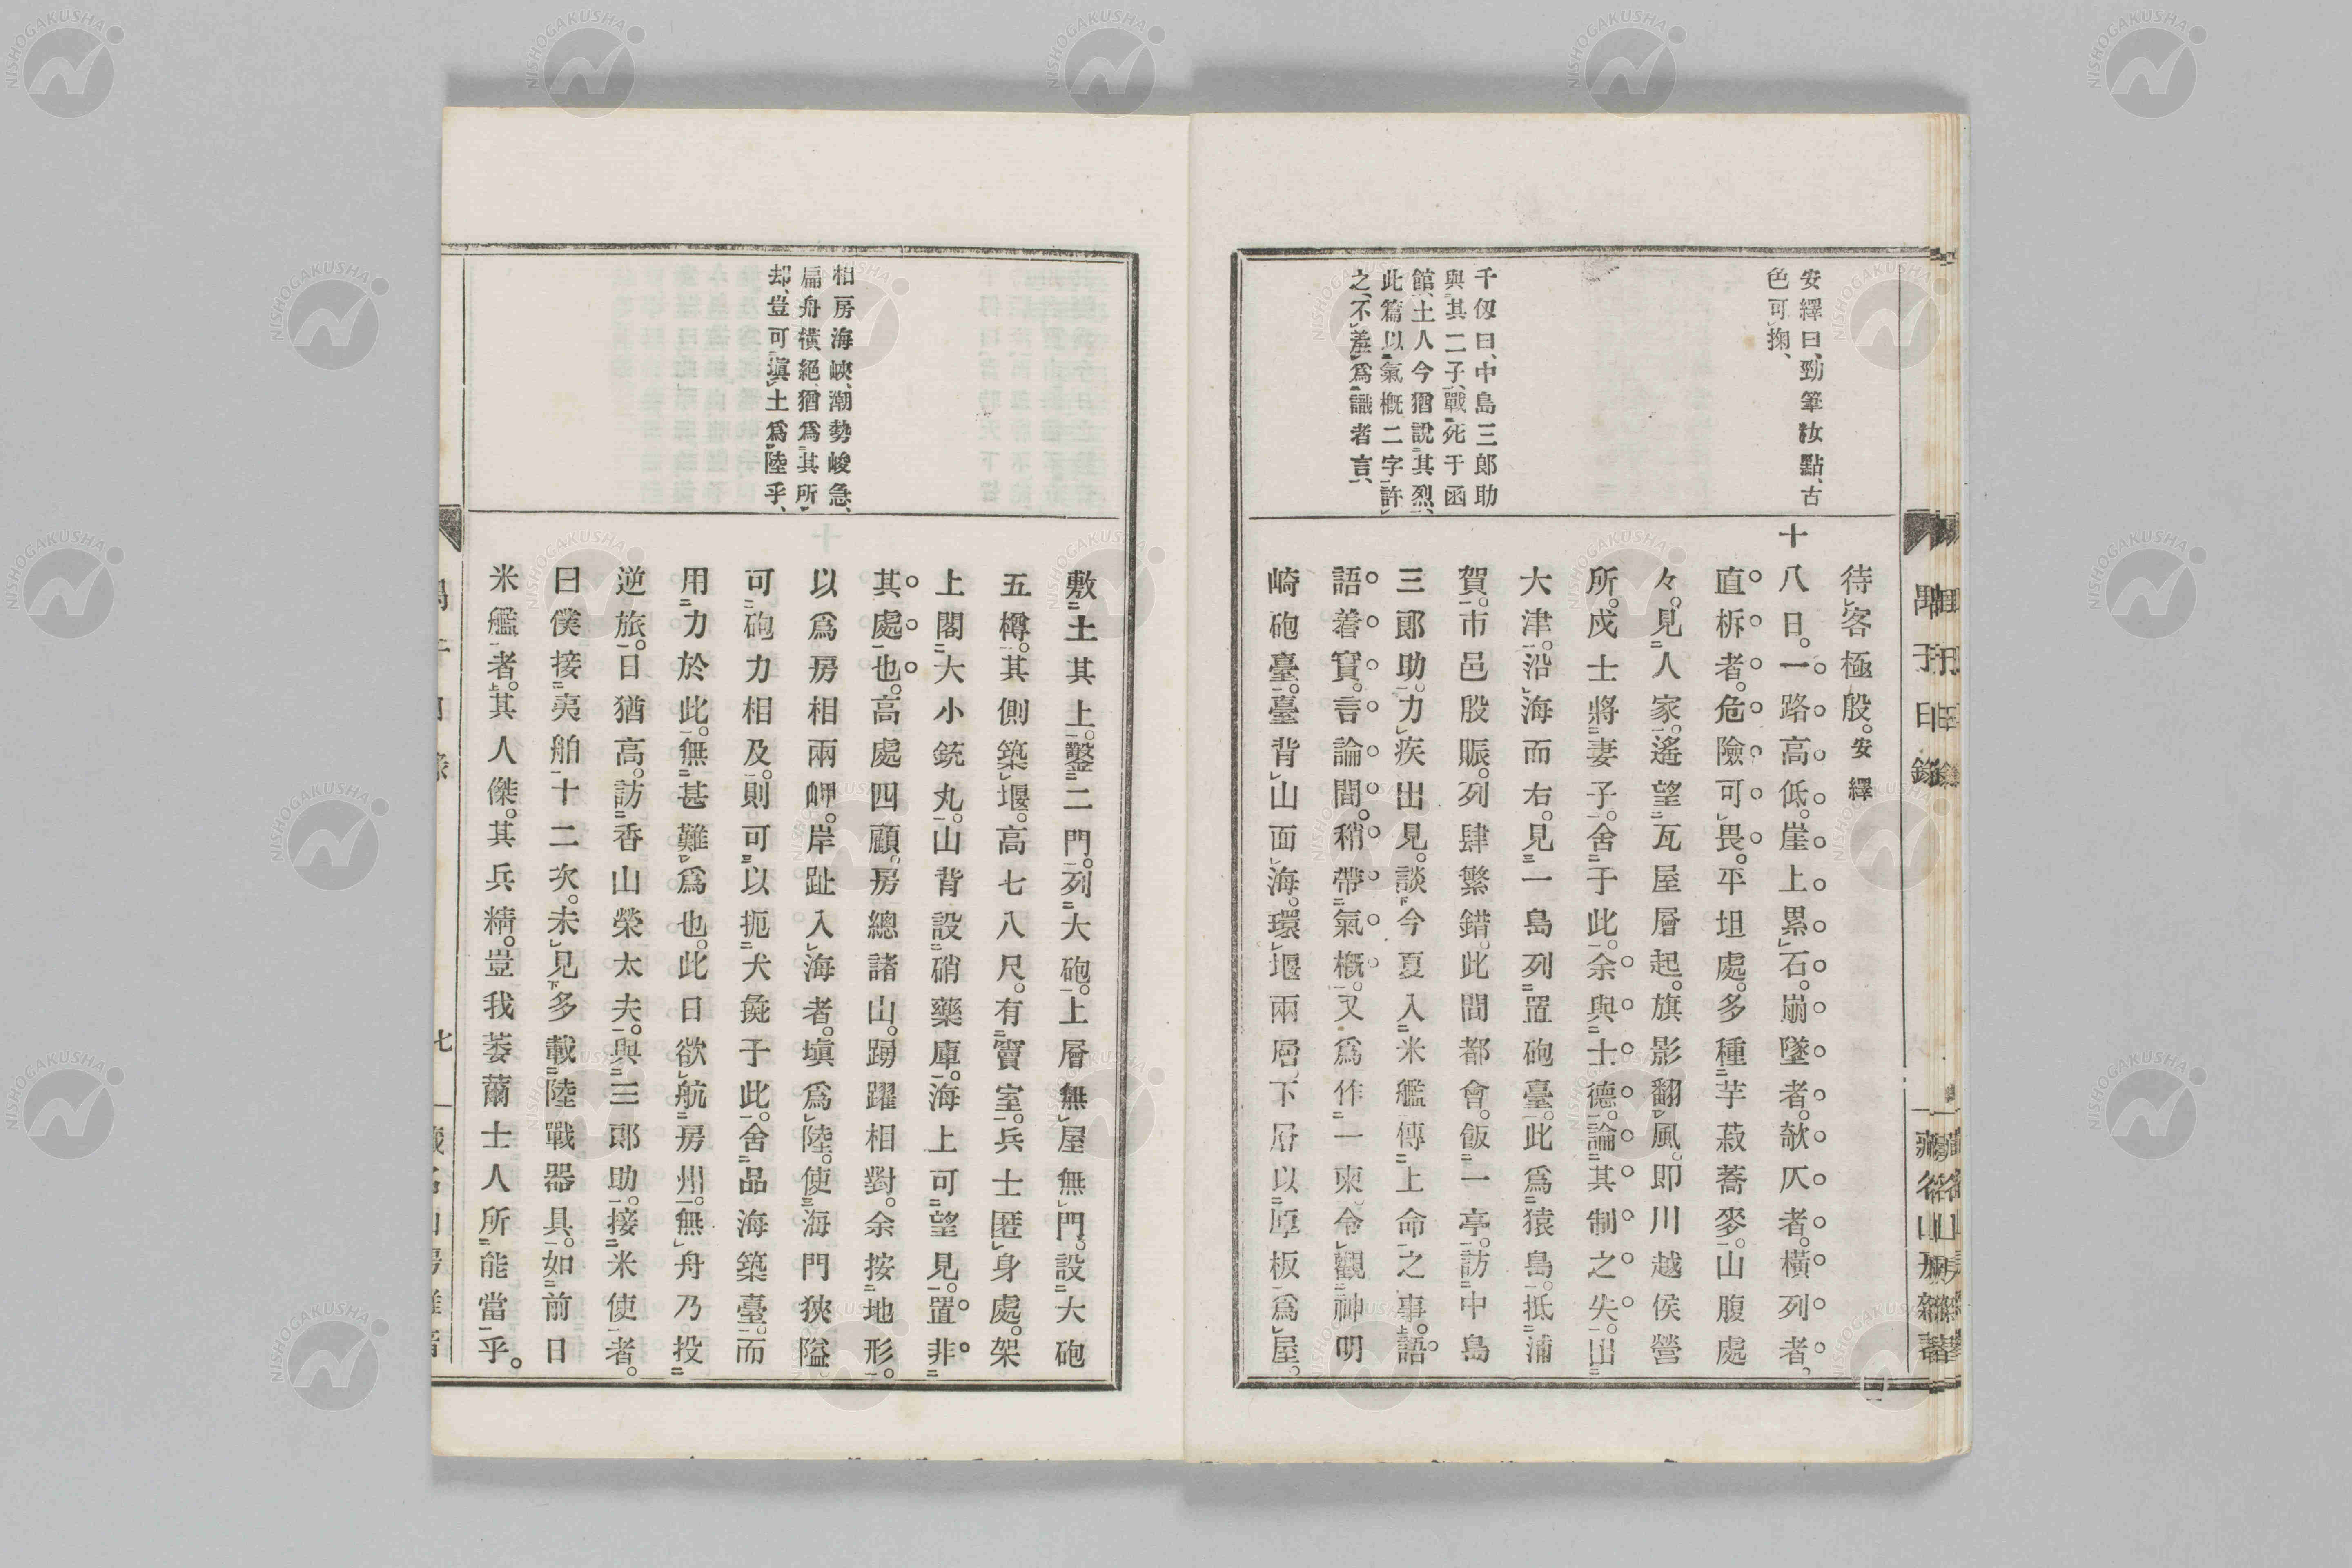 安繹曰、勁筆妝點、古
色可掬、
千仭曰、中島三郞助
與其二子、戰死于函
館、土人今猶說其烈、
此篇以氣槪二字許
之、不差爲識者言、
待客極殷。安繹
十八日。一路高低。崖上累石。崩墜者。欹仄者。橫列者。
直柝者。危險可畏。平坦處。多種芋菽蕎麥。山腹處
々。見人家。遙望瓦屋層起。旗影翻風。卽川越侯營
所。戍士將妻子。舍于此。余與士德。論其制之失。出
大津。沿海而右。見一島列置砲臺。此爲猿島。抵浦
賀。市邑殷賑。列肆繁錯。此間都會。飯一亭。訪中島
三郞助。力疾出見。談今夏入米艦傳上命之事。語
語着實。言論間。稍帶氣槪。又爲作一柬。令觀神明
崎砲臺。臺背山面海。環堰兩層。下層以厚板爲屋。
相房海峽、潮勢峻急、
扁舟橫絕、猶爲其所
却、豈可塡土爲陸乎、
敷土其上。鑿二門。列大砲。上層無屋無門。設大砲
五樽。其側築堰。高七八尺。有竇室。兵士匿身處。架
上閣大小銃丸。山背設硝藥庫。海上可望見。置非
其處也。高處四顧。房總諸山。踴躍相對。余按地形。
以爲房相兩岬。岸趾入海者。塡爲陸。使海門狹隘。
可砲力相及。則可以扼犬㺃于此。舍品海築臺。而
用力於此。無甚難爲也。此日欲航房州。無舟乃投
逆旅。日猶高。訪香山榮太夫。與三郞助。接米使者。
曰僕接夷舶十二次。未見多載陸戰器具。如前日
米艦者。其人傑。其兵精。豈我萎薾士人所能當乎。
七